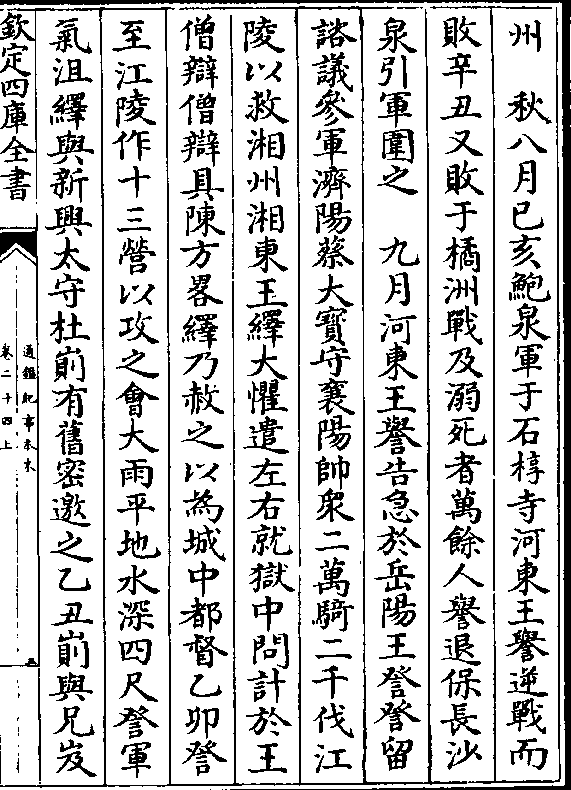 州　秋八月己亥鮑泉軍于石椁寺河東王譽逆戰而
敗辛丑又敗于橘洲戰及溺死者萬餘人譽退保長沙
泉引軍圍之　九月河東王譽告急於岳陽王詧詧留
諮議參軍濟陽蔡大寶守襄陽帥衆二萬騎二千伐江
陵以救湘州湘東王繹大懼遣左右就獄中問計於王
僧辯僧辯具陳方畧繹乃赦之以為城中都督乙卯詧
至江陵作十三營以攻之會大雨平地水深四尺詧軍
氣沮繹與新興太守杜崱有舊密邀之乙丑崱與兄岌
欽定四庫全書
通鑑紀事本末
卷二十四上